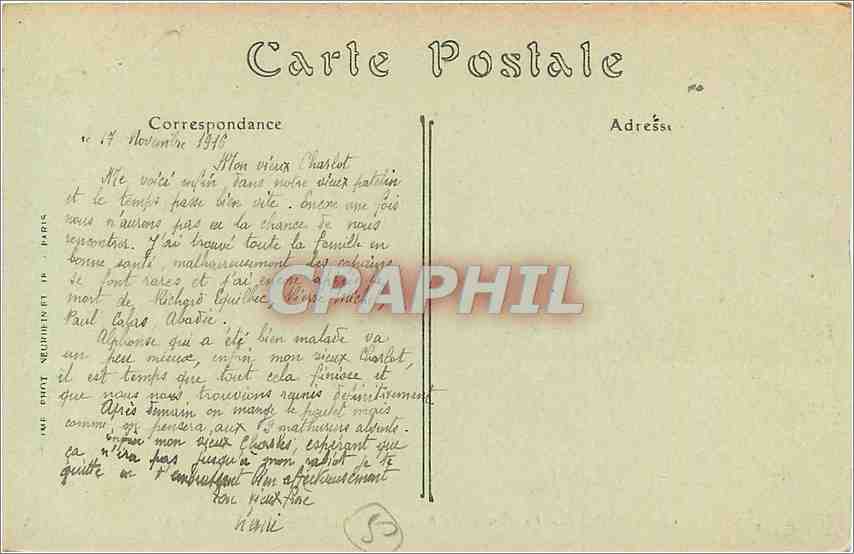 Carte Postale
Correspondance
Adresse
le 17 Novembre 1916
Mon vieux Charlot
Me voici enfin dans notre vieux patelin
et le temps passe bien vite. Encore une fois
nous n'aurons pas eu la chance de nous
rencontrer. J'ai trouvé toute la famille en
bonne santé, malheureusement les copains
se font rares et j'ai encore appris la
mort de Richard Pierre Michel,
Paul Abadie.
Alphonse qui a été bien malade va
un peu mieux, enfin mon vieux Charlot,
il est temps que tout cela finisse et
que nous nous trouvions réunis définitivement
Après demain on mange le poulet mais
comme on pensera aux 3 mathurins absents.
mon vieux Charles, espérant que
ça n'ira pas jusqu'à mon rabiot je te
quitte en t'embrassant bien affectueusement
ton vieux frère
IMP. PHOT. NEURDEIN ET CIE - PARIS
CPAPHIL
50